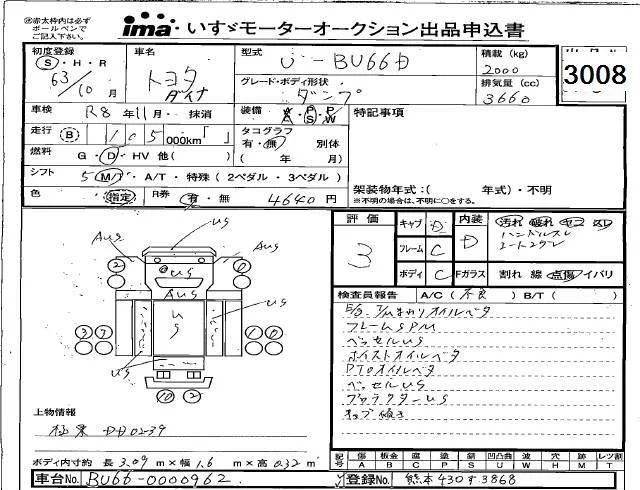 ㊟赤太枠内は必ず
ボールペンで
ご記入下さい。
ima いすゞモーターオークション出品申込書
初度登録
S・H・R
63/10月
車名
トヨタ
ダイナ
型式
U-BU66D
グレード・ボディ形状
ダンプ
積載(kg)
2000
排気量(cc)
3660
3008
車検
R8年11月・抹消
装備
走行
B 105 000km「 」
タコグラフ
有・無 別体
( 年 月)
燃料
G・D・HV 他( )
シフト
5 M/T・A/T・特殊(2ペダル・3ペダル)
色
指定
R券
有・無 4640円
特記事項
架装物年式:( 年式)・不明
※不明の場合は、不明に○をする。
評価
3
キャブ D
フレーム C
ボディ C
内装
D
汚れ 破れ
ハンドルスレ
Fガラス
割れ 線 点傷 イバリ
検査員報告 A/C(不良) B/T( )
フレームSPM
ベッセルUS
ホイストオイルベタ
PTOオイルベタ
ベッセルUS
US
AUS
AUS
US
AUS
US
US
US
US
上物情報
極東 DD02-39
ボディ内寸約 長3.09m×幅1.6m×高0.32m
記号
傷 板金 腐 塗 錆 凹凸曲 波 穴 跡 レツ割
A B C P S U W H M T
車台No. BU66-0000962
登録No. 熊本430す3868